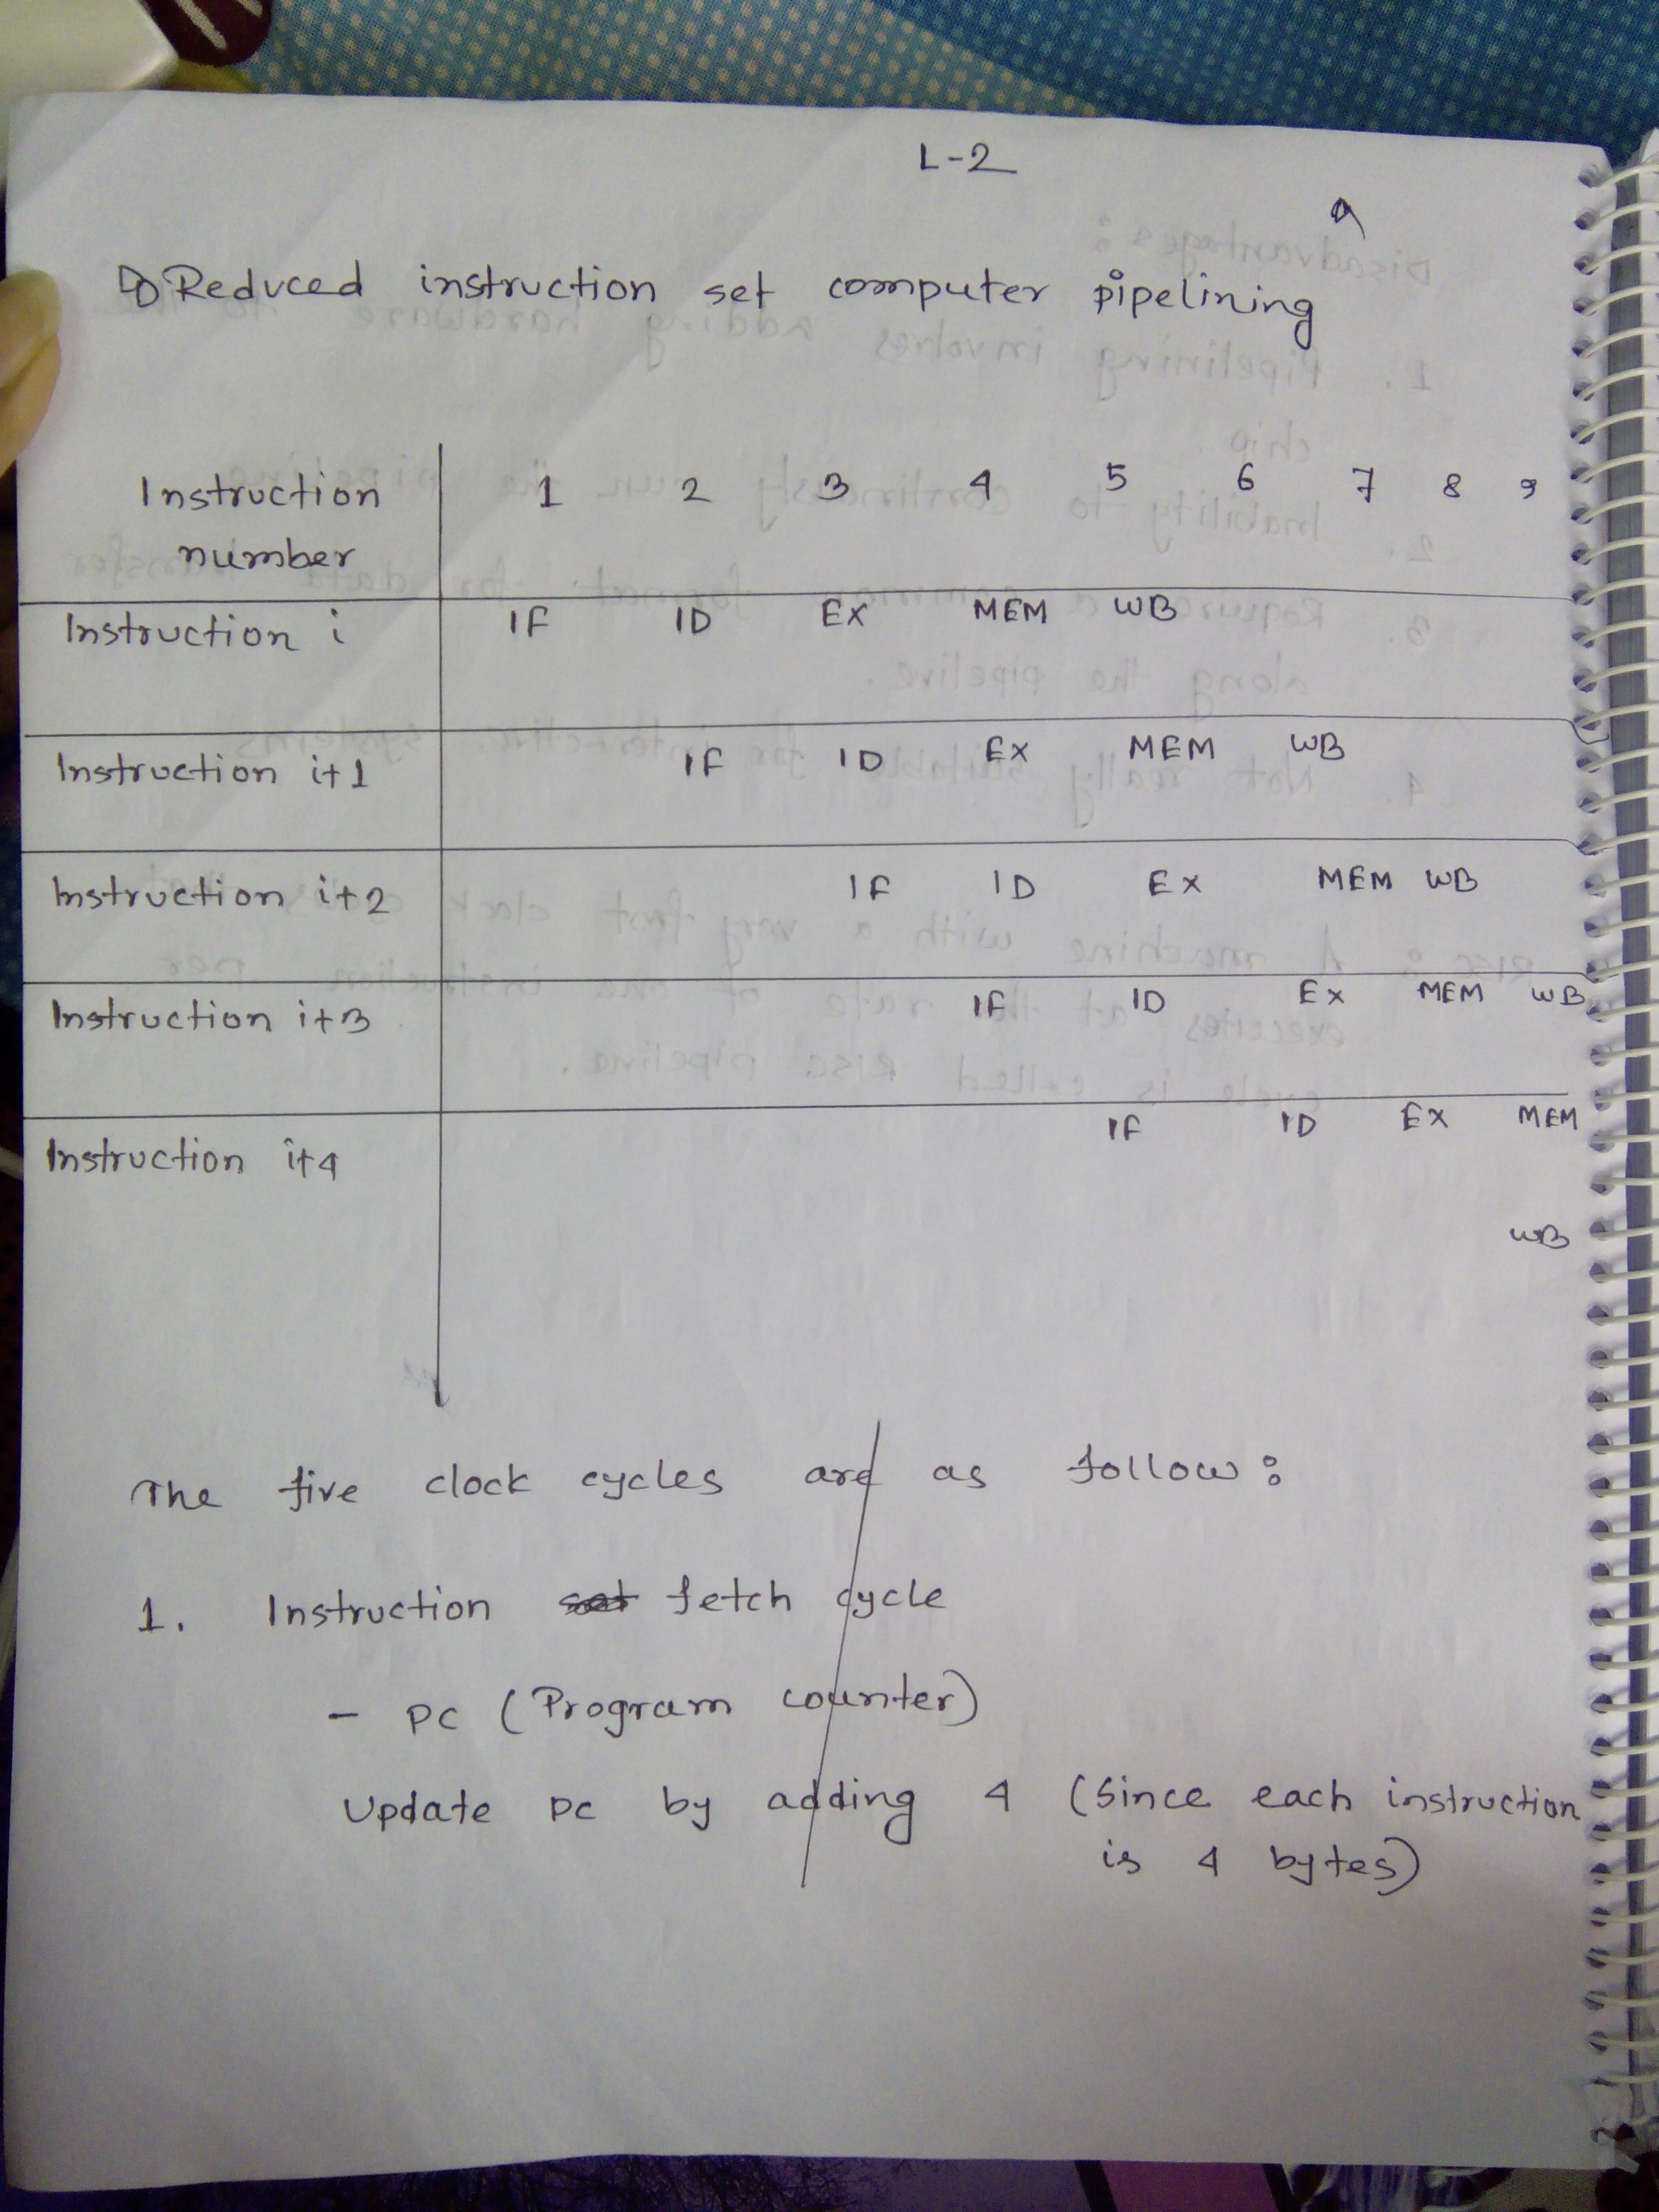 L-2
Reduced instruction set computer pipelining
Instruction number 1 2 3 4 5 6 7 8 9
Instruction i IF ID EX MEM WB
Instruction i+1 IF ID EX MEM WB
Instruction i+2 IF ID EX MEM WB
Instruction i+3 IF ID EX MEM WB
Instruction i+4 IF ID EX MEM
WB
The five clock cycles are as follow:
1. Instruction set fetch cycle
- PC (Program counter)
Update PC by adding 4 (Since each instruction
is 4 bytes)